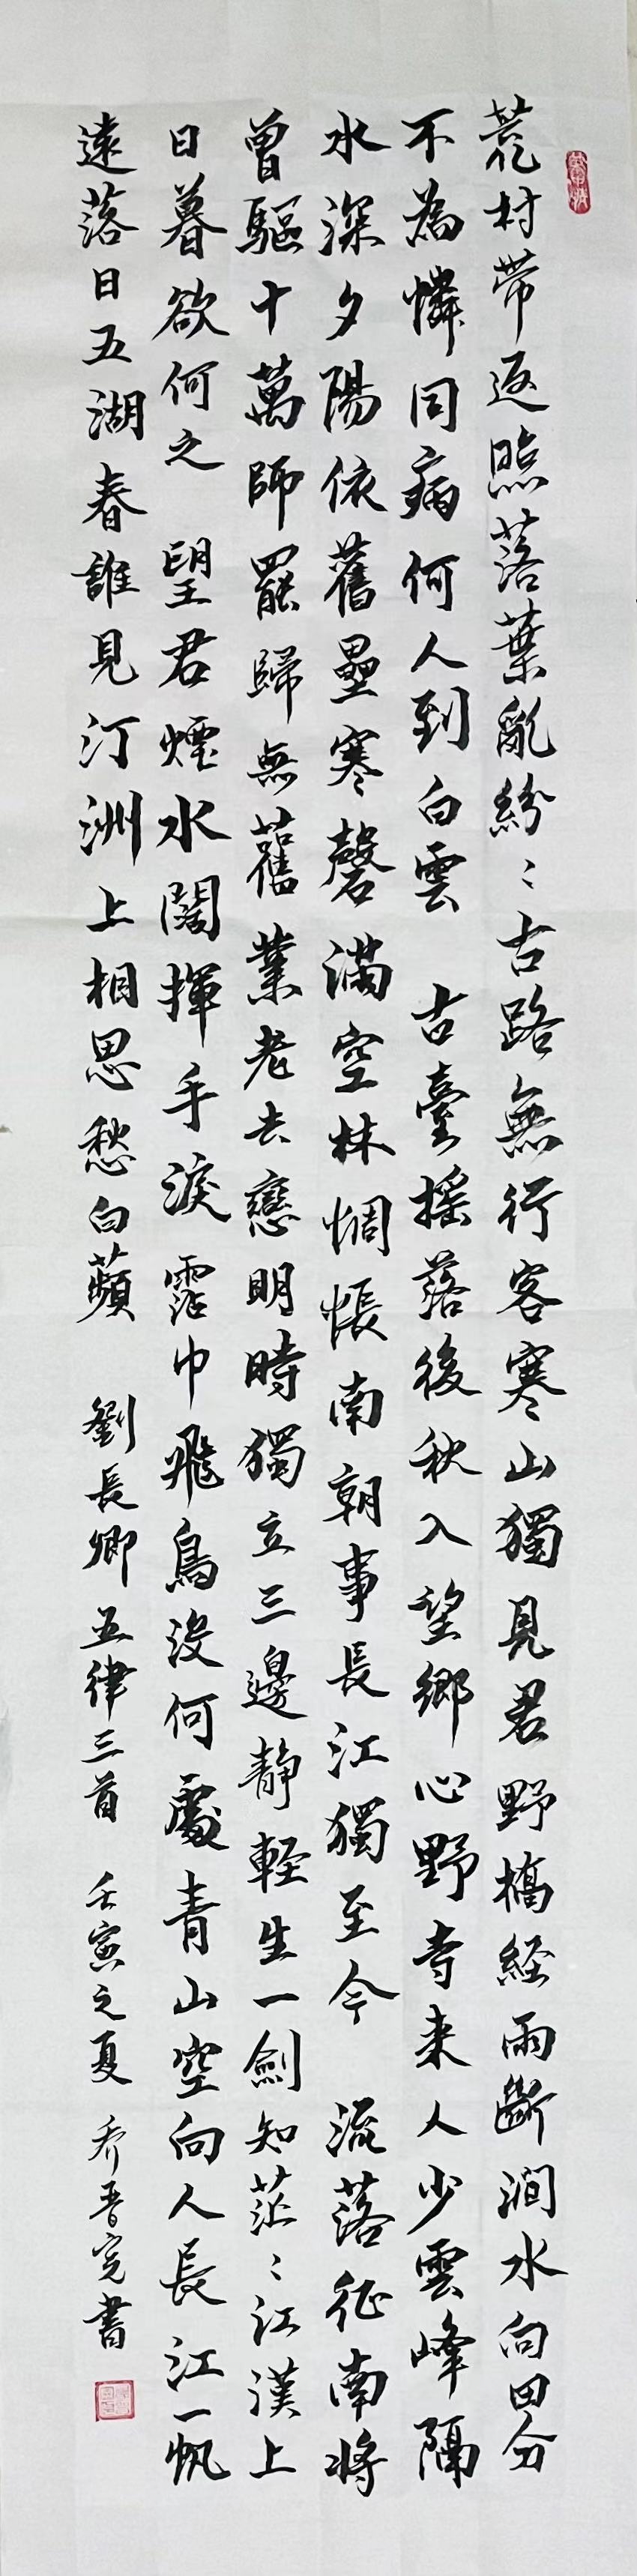 荒村帶返照落葉亂紛〻古路無行客寒山獨見君野橋経雨斷澗水向田分
不為憐同病何人到白雲 古臺搖落後秋入望鄉心野寺来人少雲峰隔
水深夕陽依舊壘寒磬滿空林惆悵南朝事長江獨至今 流落征南將
曾驅十萬師罷歸無舊業老去戀明時獨立三邊靜輕生一劍知茫〻江漢上
日暮欲何之 望君煙水闊揮手淚霑巾飛鳥沒何處青山空向人長江一帆
遠落日五湖春誰見汀洲上相思愁白蘋 劉長卿五律三首 壬寅之夏 乔晋書